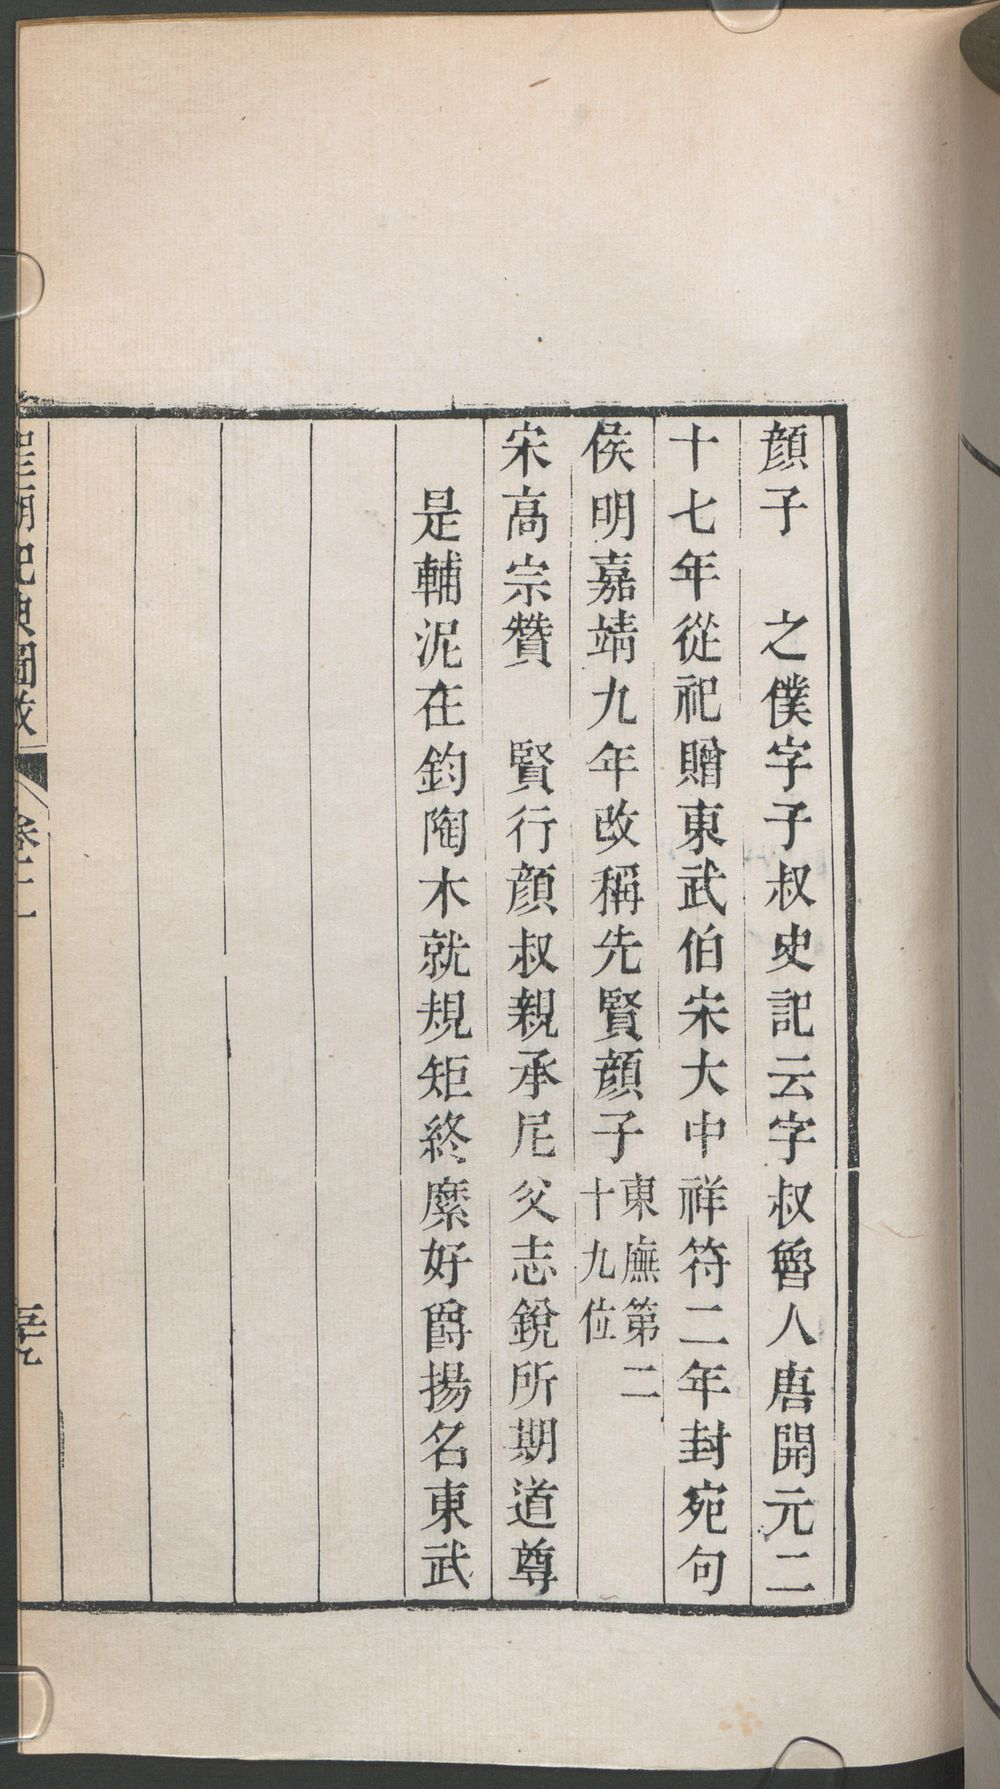 顏子　之僕字子叔史記云字叔魯人唐開元二
十七年從祀贈東武伯宋大中祥符二年封宛句
侯明嘉靖九年改稱先賢顏子東廡第二十九位
宋高宗贊　賢行顏叔親承尼父志銳所期道尊
是輔泥在鈞陶木就規矩終縻好爵揚名東武
聖朝祀典圖